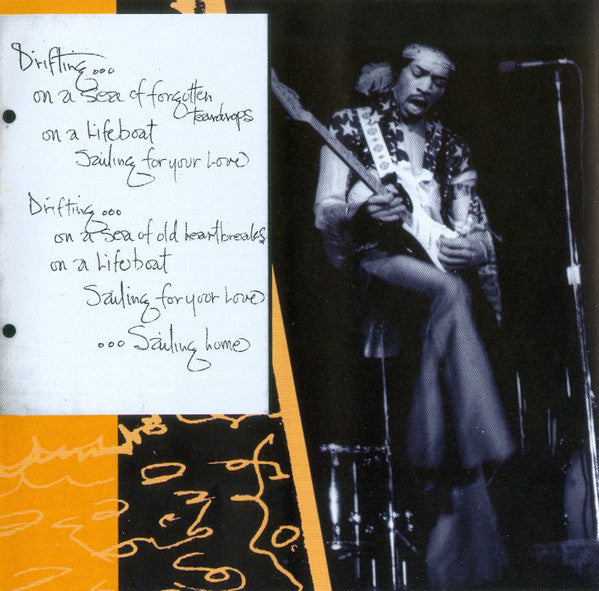 Drifting...
on a sea of forgotten
teardrops
on a Lifeboat
Sailing for your Love
Drifting...
on a sea of old heartbreaks
on a Lifeboat
Sailing for your Love
... Sailing home